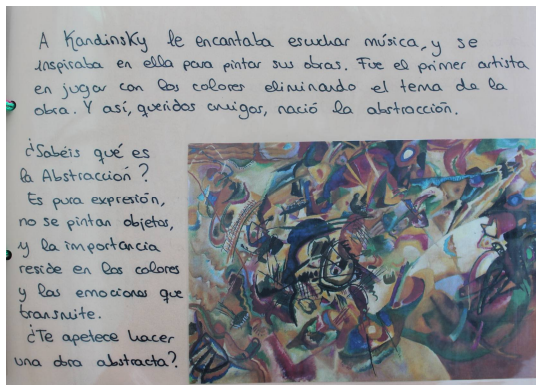 A Kandinsky le encantaba escuchar música, y se
inspiraba en ella para pintar sus obras. Fue el primer artista
en jugar con los colores eliminando el tema de la
obra. Y así, queridos amigos, nació la abstracción.
¿Sabéis qué es
la Abstracción?
Es pura expresión,
no se pintan objetos,
y la importancia
reside en los colores
y las emociones que
transmite.
¿Te apetece hacer
una obra abstracta?